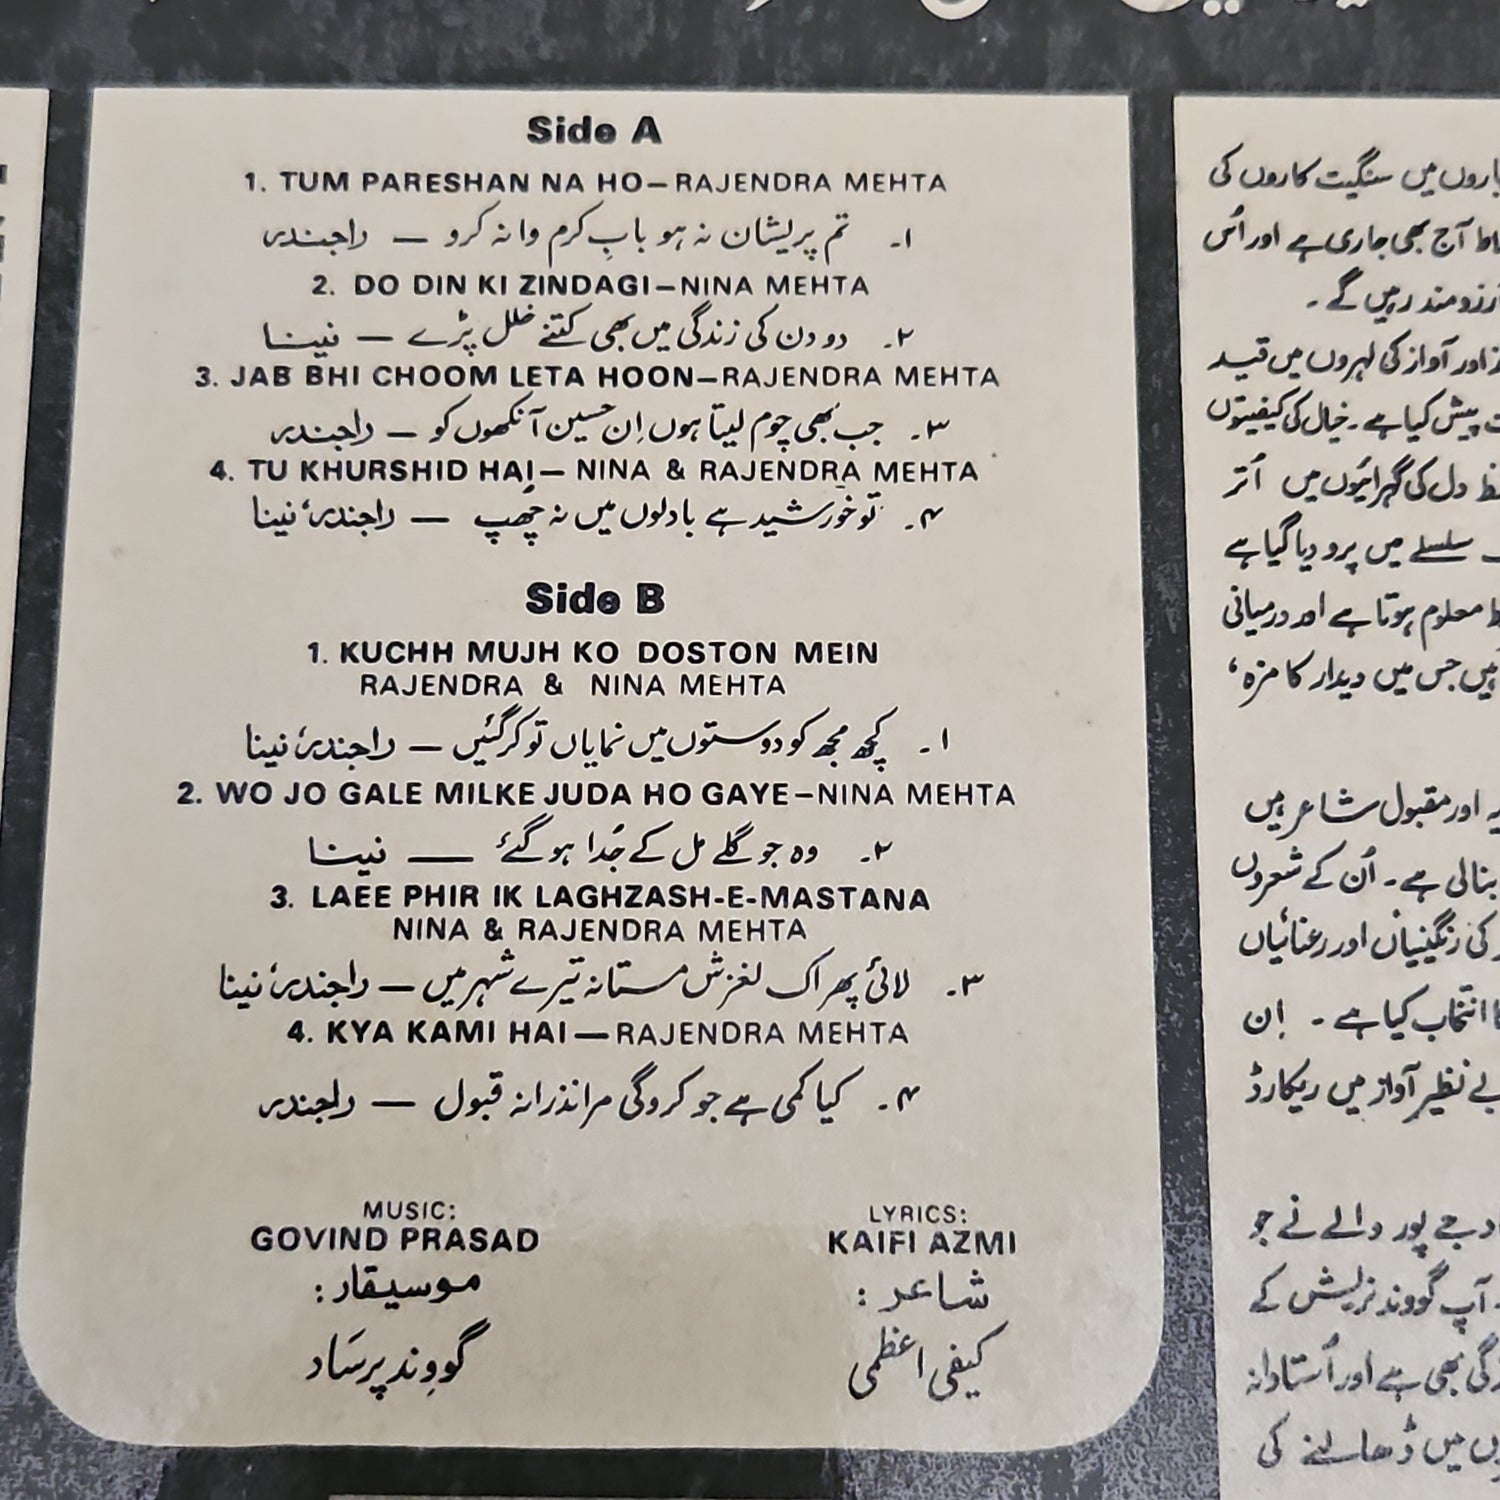 Side A
1. TUM PARESHAN NA HO–RAJENDRA MEHTA
۱۔ تم پریشان نہ ہو بابِ کرم وا نہ کرو — راجندر
2. DO DIN KI ZINDAGI–NINA MEHTA
۲۔ دو دن کی زندگی میں بھی کتنے خلل پڑے — نینا
3. JAB BHI CHOOM LETA HOON–RAJENDRA MEHTA
۳۔ جب بھی چوم لیتا ہوں اِن حسین آنکھوں کو — راجندر
4. TU KHURSHID HAI– NINA & RAJENDRA MEHTA
۴۔ تو خورشید ہے بادلوں میں نہ چُھپ — راجندر، نینا
Side B
1. KUCHH MUJH KO DOSTON MEIN
RAJENDRA & NINA MEHTA
۱۔ کچھ مجھ کو دوستوں میں نمایاں تو کر گئیں — راجندر، نینا
2. WO JO GALE MILKE JUDA HO GAYE–NINA MEHTA
۲۔ وہ جو گلے مل کے جُدا ہو گئے — نینا
3. LAEE PHIR IK LAGHZASH-E-MASTANA
NINA & RAJENDRA MEHTA
۳۔ لائی پھر اک لغزش مستانہ تیرے شہر میں — راجندر، نینا
4. KYA KAMI HAI–RAJENDRA MEHTA
۴۔ کیا کمی ہے جو کروگی مرا نذرانہ قبول — راجندر
MUSIC:
GOVIND PRASAD
موسیقار:
گووِند پرسَاد
LYRICS:
KAIFI AZMI
شاعر:
کیفی اعظمی
میں سنگیت کاروں کی
آج بھی جاری ہے اور اُس
رہیں گے ۔
اور آواز کی لہروں میں قید
پیش کیا ہے ۔ خیال کی کیفیتوں
دل کی گہرائیوں میں اُتر
سلسلے میں پرو دیا گیا ہے
معلوم ہوتا ہے اور درمیانی
ہیں جس میں دیدار کا مزہ،
اور مقبول شاعر ہیں
بنالی ہے ۔ اُن کے شعروں
کی رنگینیاں اور رعنائیاں
انتخاب کیا ہے ۔ اِن
بے نظیر آواز میں ریکارڈ
جے پور والے نے جو
آپ گووند نریش کے
بھی ہے اور اُستادانہ
میں ڈھالنے کی